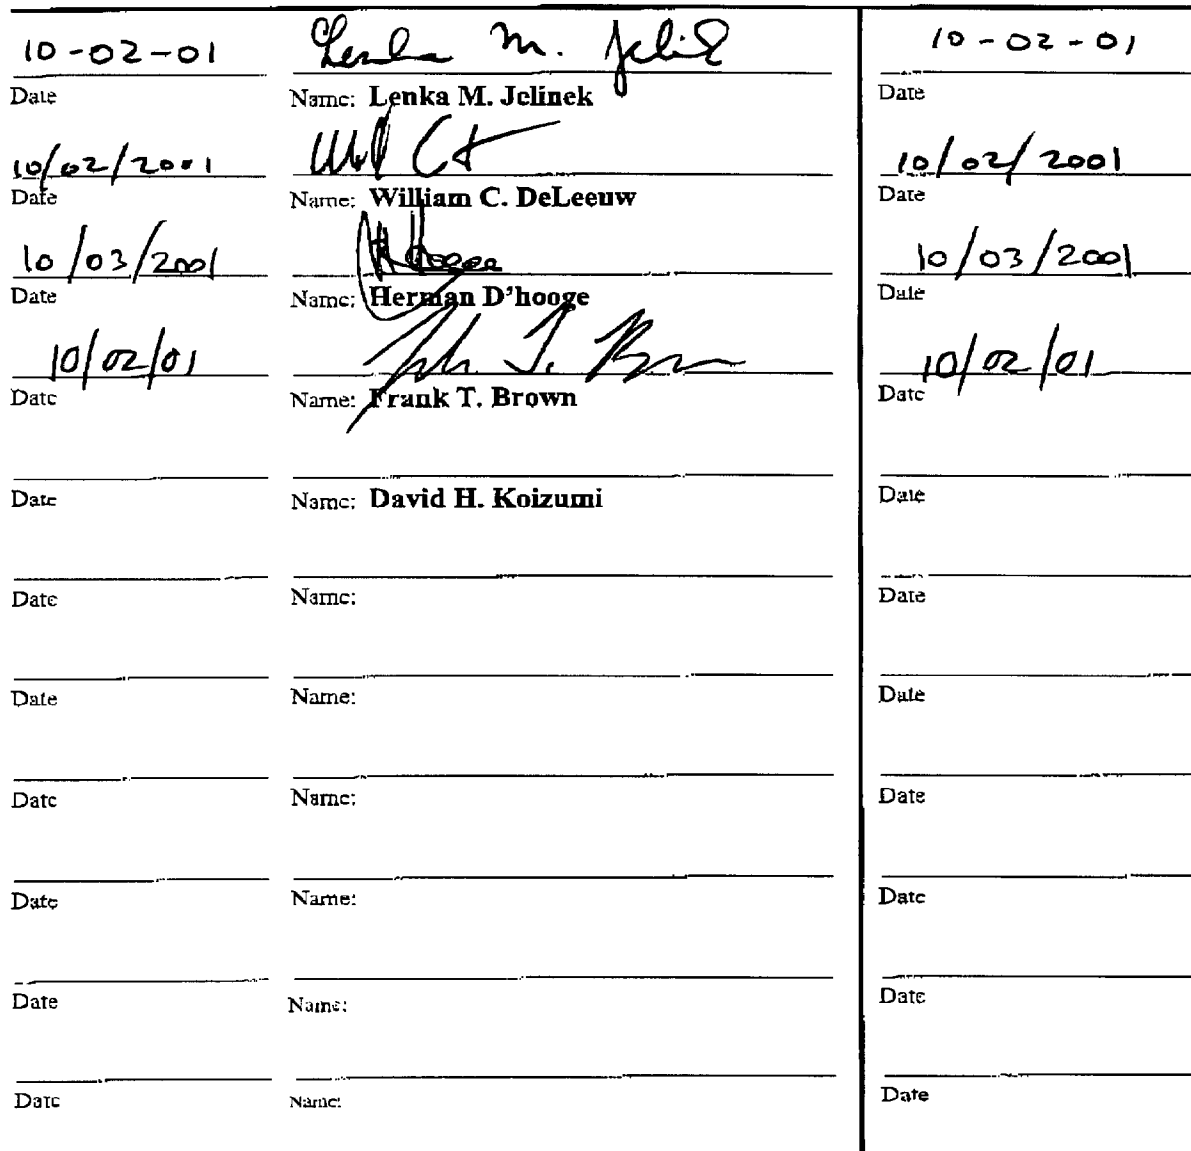 10-02-01 Lenka M. Jelinek 10-02-01
Date Name: Lenka M. Jelinek Date
10/02/2001 10/02/2001
Date Name: William C. DeLeeuw Date
10/03/2001 10/03/2001
Date Name: Herman D'hooge Date
10/02/01 10/02/01
Date Name: Frank T. Brown Date
Date Name: David H. Koizumi Date
Date Name: Date
Date Name: Date
Date Name: Date
Date Name: Date
Date Name: Date
Date Name: Date